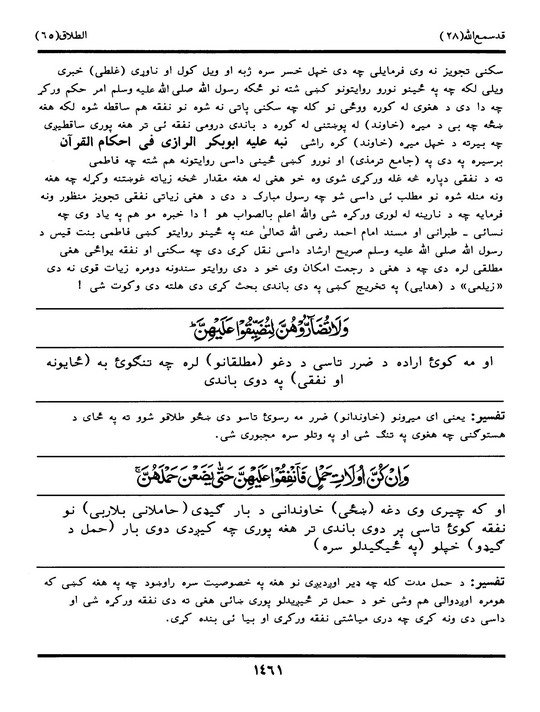 قدسمع الله(۲۸) الطلاق(۶۵)
سکنی تجویز نه وی فرمایلی چه دی خپل خسر سره ژبه او ویل کول او ناوړی (غلطی) خبری
ویلی لکه چه په ځینو نورو روایتونو کښی شته نو ځکه رسول الله صلی الله علیه وسلم امر حکم ورکړ
چه دا دی د هغوی له کوره ووځی نو کله چه سکنی پاتی نه شوه نو نفقه هم ساقطه شوه لکه هغه
ښځه چه بی د میړه (خاوند) له پوښتنی له کوره د باندی درومی نفقه ئی تر هغه پوری ساقطیږی
چه بیرته د خپل میړه (خاوند) کره راشی نبه علیه ابوبکر الرازی فی احکام القرآن
برسیره په دی په (جامع ترمذی) او نورو کښی ځینی داسی روایتونه هم شته چه فاطمی
ته د نفقی دپاره څه غله ورکړی شوی وه خو هغی له هغه مقدار څخه زیاته غوښتنه وکړله چه هغه
ونه منله شوه نو مطلب ئی داسی شو چه رسول مبارک د دی د هغی زیاتی نفقی تجویز منظور ونه
فرمایه چه د نارینه له لوری ورکړه شی والله اعلم بالصواب هو ! دا خبره مو هم په یاد وی چه
نسائی ـ طبرانی او مسند امام احمد رضی الله تعالیٰ عنه په ځینو روایتو کښی فاطمی بنت قیس د
رسول الله صلی الله علیه وسلم صریح ارشاد داسی نقل کړی دی چه سکنی او نفقه یواځی هغی
مطلقی لره دی چه د هغی د رجعت امکان وی خو د دی روایتو سندونه دومره زیات قوی نه دی
«زیلعی» د (هدایی) په تخریج کښی په دی باندی بحث کړی دی هلته دی وکوت شی !
وَلَا تُضَآرُّوْهُنَّ لِتُضَيِّقُوْا عَلَيْهِنَّ ؕ
او مه کوئ اراده د ضرر تاسی د دغو (مطلقانو) لره چه تنګوئ به (ځایونه
او نفقی) په دوی باندی
تفسیر: یعنی ای میړونو (خاوندانو) ضرر مه رسوئ تاسو دی ښځو طلاقو شوو ته په ځای د
هستوګنی چه هغوی په تنګ شی او په وتلو سره مجبوری شی.
وَاِنْ كُنَّ اُولَاتِ حَمْلٍ فَاَنْفِقُوْا عَلَيْهِنَّ حَتّٰى يَضَعْنَ حَمْلَهُنَّ ۚ
او که چیری وی دغه (ښځی) خاوندانی د بار ګیډی(حاملانی بلاربی) نو
نفقه کوئ تاسی پر دوی باندی تر هغه پوری چه کیږدی دوی بار (حمل د
ګیډو) خپلو (په ځیګیدلو سره)
تفسیر: د حمل مدت کله چه ډیر اوږدیږی نو هغه په خصوصیت سره راوښود چه په هغه کښی که
هومره اوږدوالی هم وشی خو د حمل تر ځیږیدلو پوری ښائی هغی ته دی نفقه ورکړه شی او
داسی دی ونه کړی چه دری میاشتی نفقه ورکړی او بیا ئی بنده کړی.
۱۴۶۱